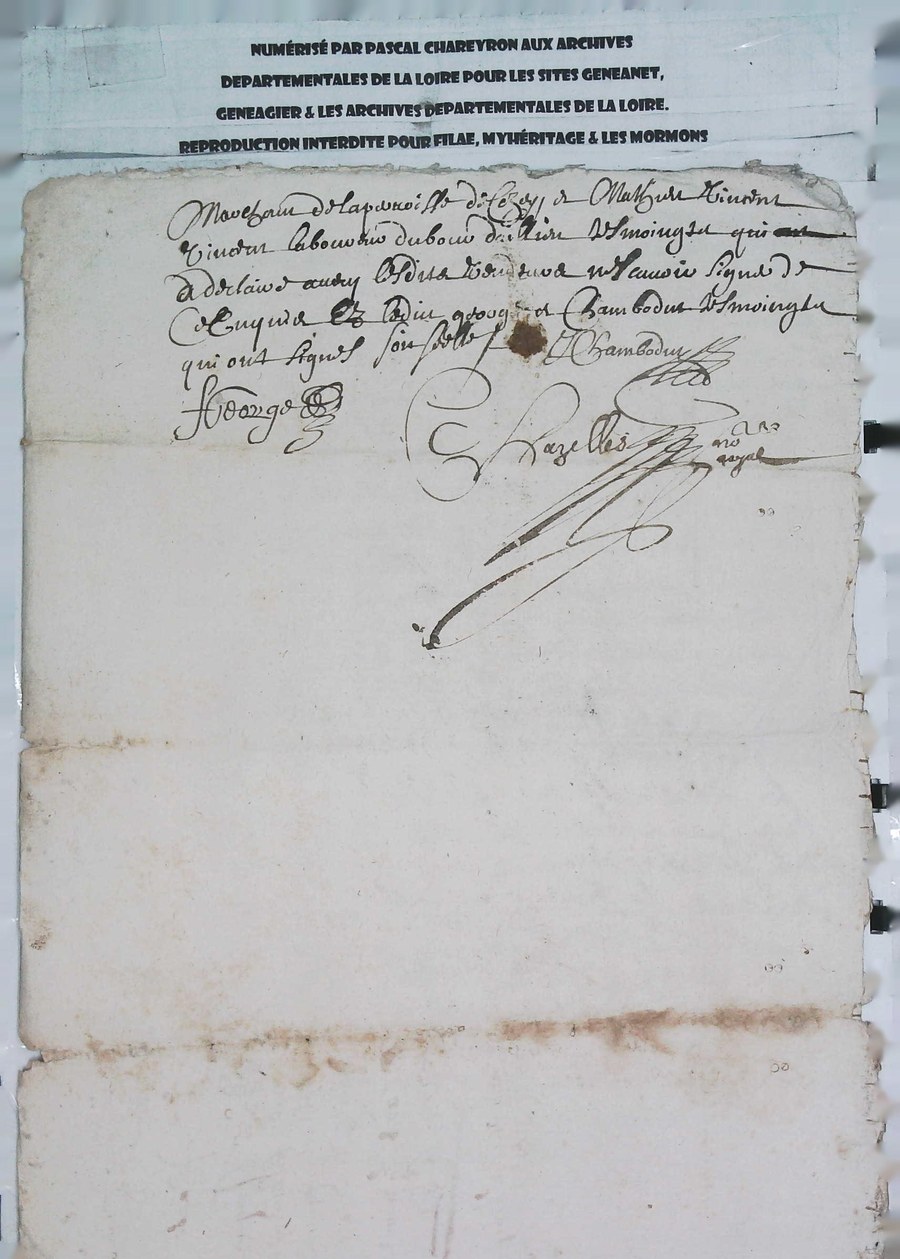 NUMÉRISÉ PAR PASCAL CHAREYRON AUX ARCHIVES
DEPARTEMENTALES DE LA LOIRE POUR LES SITES GENEANET,
GENEAGIER & LES ARCHIVES DEPARTEMENTALES DE LA LOIRE.
REPRODUCTION INTERDITE POUR FILAE, MYHÉRITAGE & LES MORMONS
Marchant de la parroisse de et Mathieu Vincent
Vincent laboureur du bourg tesmoingtz qui
a declaire avecq lesdits vendeurs ne scavoir signe de
ce enquis et ledit George et Chambodut tesmoingtz
qui ont signes soubselles Chambodut
George
Chazelles
no
royal